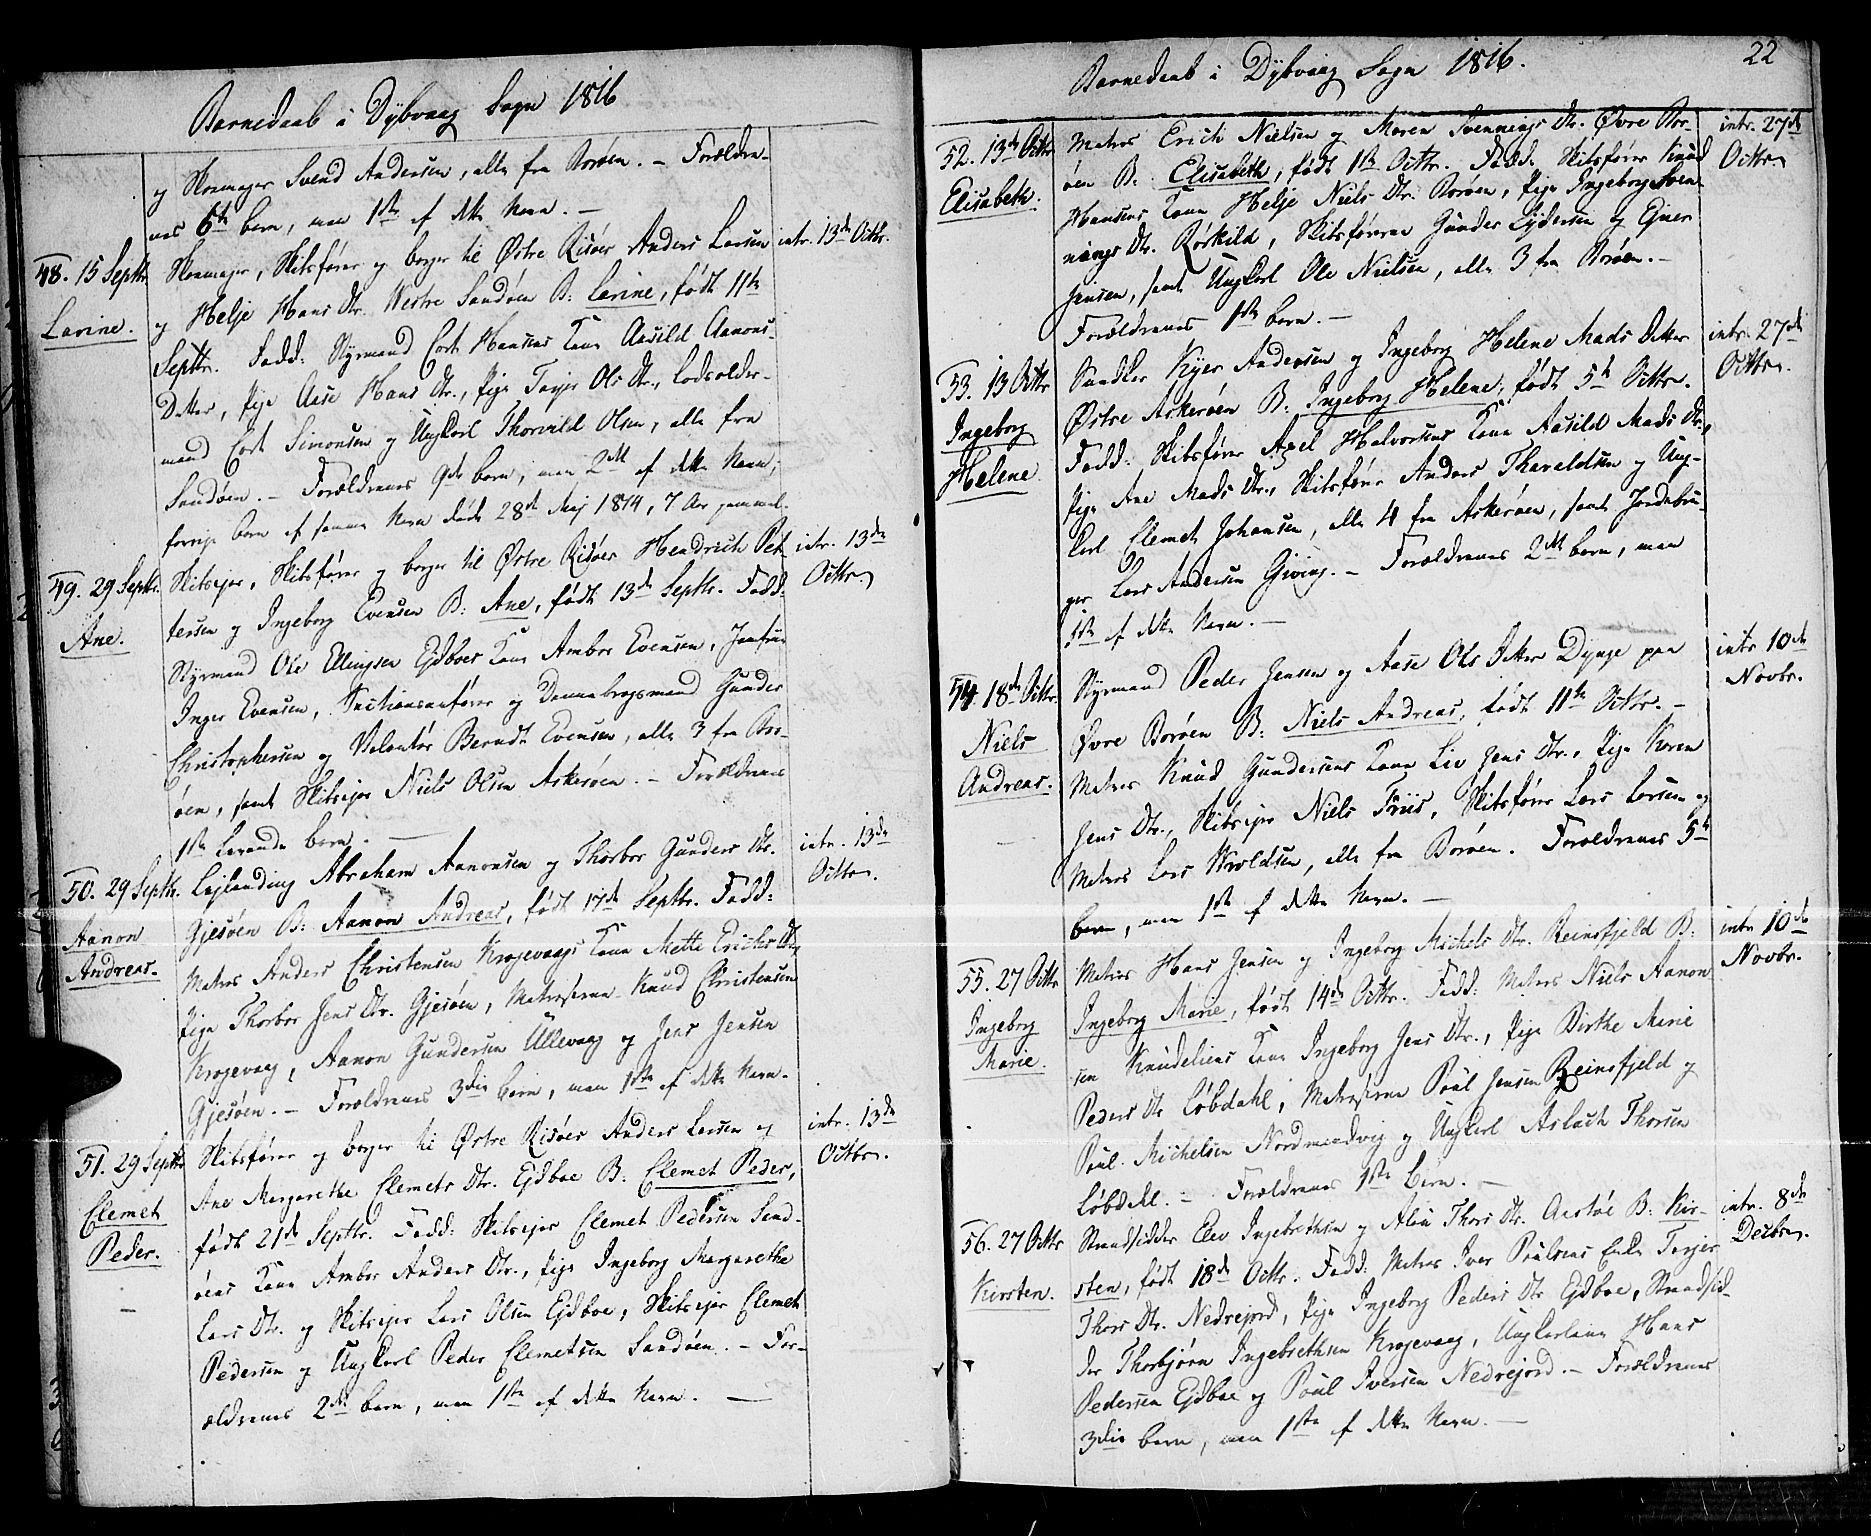 Barnedaab i Dybvaag Sogn 1816
og Skomager Svend Andersen, alle fra Borøen. – Forældre-
nes 6te barn, men 1ste af dette Navn. –
48. 15 Septbr.
Larine.
Skomager, Skibsfører og borger til Østre Risøer Anders Larsen
og Helje Hans Dtr. Westre Sandøen B: Larine, født 11te
Septbr. Fadd: Styrmand Cort Hansens Kone Aasild Aanons-
Datter, Pige Aase Hans Dtr., Pige Taaje Ols Dtr., Lodsolder-
mand Cort Simonsen og Ungkarl Thorvild Olsen, alle fra
Sandøen. – Forældrenes 9de barn, men 2det af dette Navn,
forrige barn af samme Navn døde 28de Maj 1814, 7 Aar gammel.
intr. 13de Octbr.
49. 29 Septbr.
Ane.
Skibsejer, Skibsfører og borger til Østre Risøer Hendrich Pet-
tersen og Ingeborg Evensen B: Ane, født 13de Septbr. Fadd:
Styrmand Ole Ellingsen Ejdboes Kone Ambor Evensen, Jomfrue
Inger Evensen, Auctionsanfører og Dannebrogsmand Gunder
Christophersen og Volontør Berndt Evensen, alle 3 fra Bor-
øen, samt Skibsejer Niels Olsen Askerøen. – Forældrenes
1ste Levende barn. –
intr. 13de
Octbr.
50. 29 Septbr.
Aanon
Andreas.
Lejlænding Abraham Aanonsen og Thorbor Gunders Dtr.
Gjesøen B: Aanon Andreas, født 17de Septbr. Fadd:
Matros Anders Christensen Krogevaags Kone Mette Erichs Dtr,
Pige Thorbor Jens Dtr. Gjesøen, Matroserne Knud Christensen
Krogevaag, Aanon Gundersen Ullevaag og Jens Jensen
Gjesøen. – Forældrenes 3die barn, men 1ste af dette Navn.
intr. 13de
Octbr.
51. 29 Septbr.
Clemet
Peder.
Skibsfører og borger til Østre Risøer Anders Larsen og
Ane Margarethe Clemets Dtr. Ejdboe B: Clemet Peder,
født 21de Septbr. Fadd: Skibsejer Clemet Pedersen Sand-
øens Kone Ambor Anders Dtr., Pige Ingeborg Margarethe
Lars Dtr. og Skibsejer Lars Olsen Ejdboe, Skibsejer Clemet
Pedersen og Ungkarl Peder Clemetsen Sandøen. – For-
ældrenes 2det barn, men 1ste af dette Navn. –
intr. 13de
Octbr.
Barnedaab i Dybvaag Sogn 1816.
22
52. 13de Octbr
Elisabeth.
Matros Erich Nielsen og Maren Svennings Dtr. Øvre Bor-
øen B: Elisabeth, født 1ste Octbr. Fadd: Skibsfører Knud
Hansens Kone Helje Niels Dtr. Borøen, Pige Ingeborg Sven-
nings Dtr. Rørkild, Skibsførerne Gunder Lydersen og Ejner
Jensen, samt Ungkarl Ole Nielsen, alle 3 fra Borøen. –
Forældrenes 1ste barn. –
intr. 27de
Octbr.
53. 13 Octbr
Ingeborg
Helene.
Snedker Kyer Andersen og Ingeborg Helene Mads Datter
Østre Askerøen B: Ingeborg Helene, født 5te Octbr.
Fadd: Skibsfører Axel Halvorsens Kone Aasild Mads Dtr.,
Pige Ane Mads Dtr., Skibsfører Anders Tharaldsen og Ung-
karl Clemet Johansen, alle 4 fra Askerøen, samt Jordebru-
ger Lars Andersen Giving. – Forældrenes 2det barn, men
1ste af dette Navn. –
intr. 27de
Octbr.
54. 18de Octbr.
Niels
Andreas.
Styrmand Peder Jensen og Aase Ols Datter Dynge paa
Øvre Borøen B: Niels Andreas, født 11te Octbr. –
Matros Knud Gundersens Kone Liv Jens Dtr., Pige Karen
Jens Dtr., Skibsejer Niels Friis, Skibsfører Lars Larsen og
Matros Lars Wroldsen, alle fra Borøen. Forældrenes 5te
barn, men 1ste af dette Navn. –
intr 10de
Novbr.
55. 27 Octbr
Ingeborg
Marie.
Matros Hans Jensen og Ingeborg Michels Dtr. Reinsfjeld B:
Ingeborg Marie, født 14de Octbr. Fadd: Matros Niels Aanon-
sen Knudeliens Kone Ingeborg Jens Dtr., Pige Birthe Marie
Peders Dtr Løbdahl, Matroserne Poul Jensen Reinsfjeld og
Poul Michelsen Nordmandvig og Ungkarl Aslach Thorsen
Løbdal. – Forældrenes 1ste Barn. –
intr 10de
Novbr.
56. 27 Octbr
Kirsten.
Strandsidder Elev Ingebrethsen og Alou Thors Dtr. Aastøe B: Kir-
sten, født 18de Octbr. Fadd: Matros Iver Poulsens Enke Terjer
Thors Dtr. Nedrejord, Pige Ingeborg Peders Dtr Ejdboe, Strandsid-
der Thorbjørn Ingebrethsen Krogevaag, Ungkarlene Hans
Pedersen Ejdboe og Poul Iversen Nedrejord. – Forældrenes
3die barn, men 1ste af dette Navn. –
intr. 8de
Decbr.